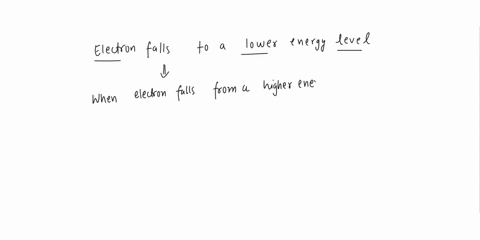 Electron falls to a lower energy level
When electron falls from a higher ene